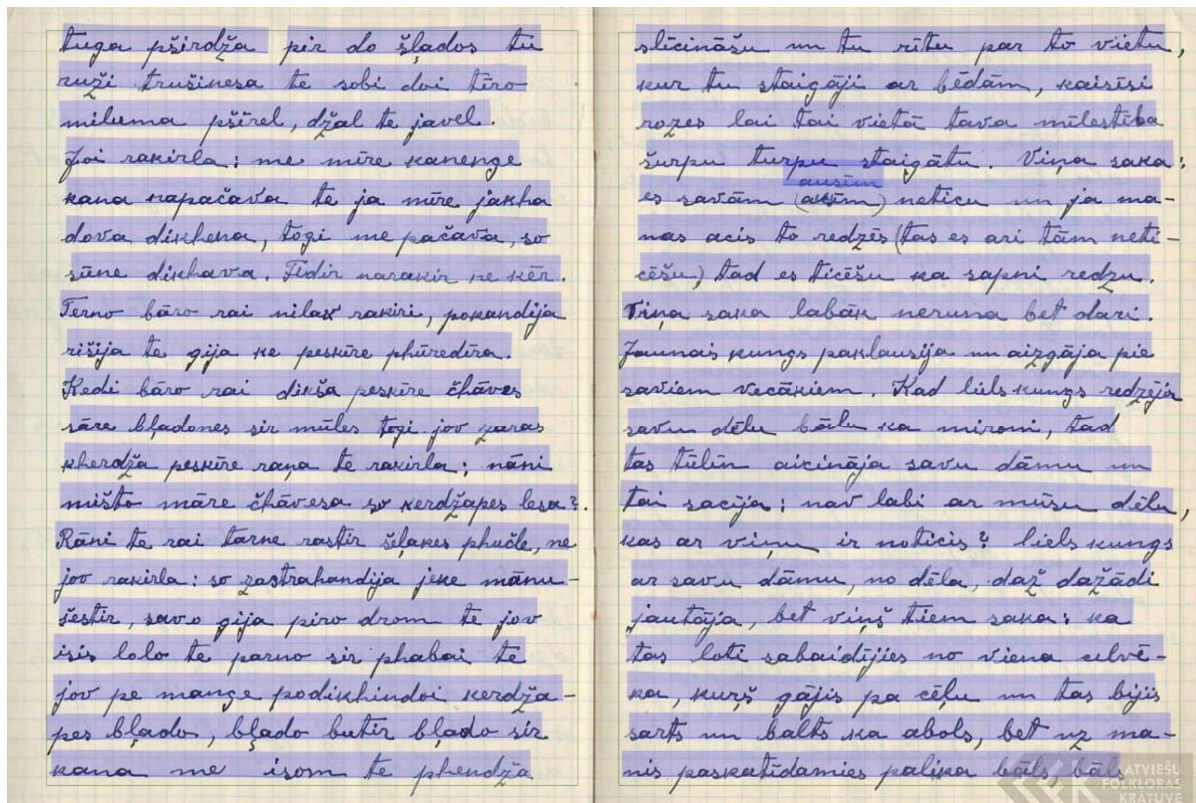 tuga pširdža pir do šļados tu
ruži trušinesa te sobi doi tīro
miluma pšīrel, džal te javel.
Joi rakirla: me mīre kanenge
kana napačava te ja mīre jakha
dova dikhena, togi me pačava, so
sūne dikhava. Fidir narakir ne kēr.
Terno bāro rai nilax rakiri, pokandija
rišija te gija ke peskīre phūredīra.
Kedi bāro rai dikša peskīre čhāves
sāre bļadones sir mūles togi jov zaras
kherdža peskīre raņa te rakirla: nāni
mišto māre čhāvesa so kerdžapes lesa?
Rāni te rai tarne rastir šeļakes phučle, ne
jov rakirla: so zastrahandija jeke mānu-
šestir, savo gija piro drom te jov
isis lolo te parno sir phabai te
jov pe mange podikhindoi kerdža-
pes bļado, bļado butir bļado sir
kana me isom te phendža
slīcināšu un tu rītu par to vietu,
kur tu staigāji ar bēdām, kaisīsi
rozes lai tai vietā tava mīlestība
šurpu turpu staigātu. Viņa saka:
ausīm
es savām (akīm) neticu un ja ma-
nas acis to redzēs (tas es ari tām neti-
cēšu) tad es ticēšu ka sapni redzu.
Viņa saka labāk neruna bet dari.
Jaunais kungs paklausija un aizgāja pie
saviem vecākiem. Kad liels kungs redzēja
savu dēlu bālu ka mironi, tad
tas tūlīn aicināja savu dāmu un
tai sacīja: nav labi ar mūsu dēlu,
kas ar viņu ir noticis? Liels kungs
ar savu dāmu, no dēla, daž dažādi
jautāja, bet viņš tiem saka: ka
tas loti sabaidījies no viena cilvē-
ka, kurš gājis pa cēļu un tas bijis
sarts un balts ka abols, bet uz ma-
nis paskatīdamies palika bāls, bāls
LATVIEŠU
FOLKLORAS
KRĀTUVE